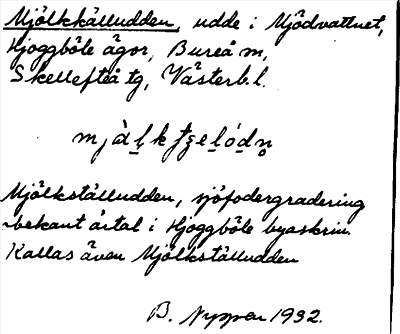 Mjölkkälludden, udde i Mjödvattnet,
Hjoggböle ägor, Bureå sn,
Skellefteå tg, Västerb. l.
Mjölkställudden, sjöfodergradering
bekant årtal i Hjoggböle byaskrin.
Kallas även Mjölkställudden
B. Nyman 1932.